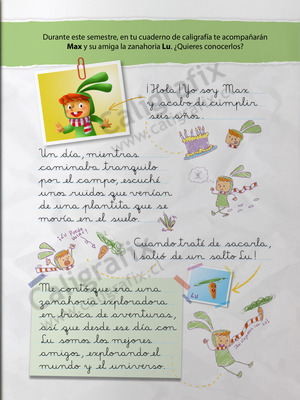 Durante este semestre, en tu cuaderno de caligrafía te acompañarán
Max y su amiga la zanahoria Lu. ¿Quieres conocerlos?
¡Hola! Yo soy Max
y acabo de cumplir
seis años.
Un día, mientras
caminaba tranquilo
por el campo, escuché
unos ruidos que venían
de una plantita que se
movía en el suelo.
Cuando traté de sacarla,
salió de un salto Lu!
Lu
Me contó que era una
zanahoria exploradora
en busca de aventuras,
así que desde ese día con
Lu somos los mejores
amigos, explorando el
mundo y el universo.
Caligrafix
www.caligrafix.cl